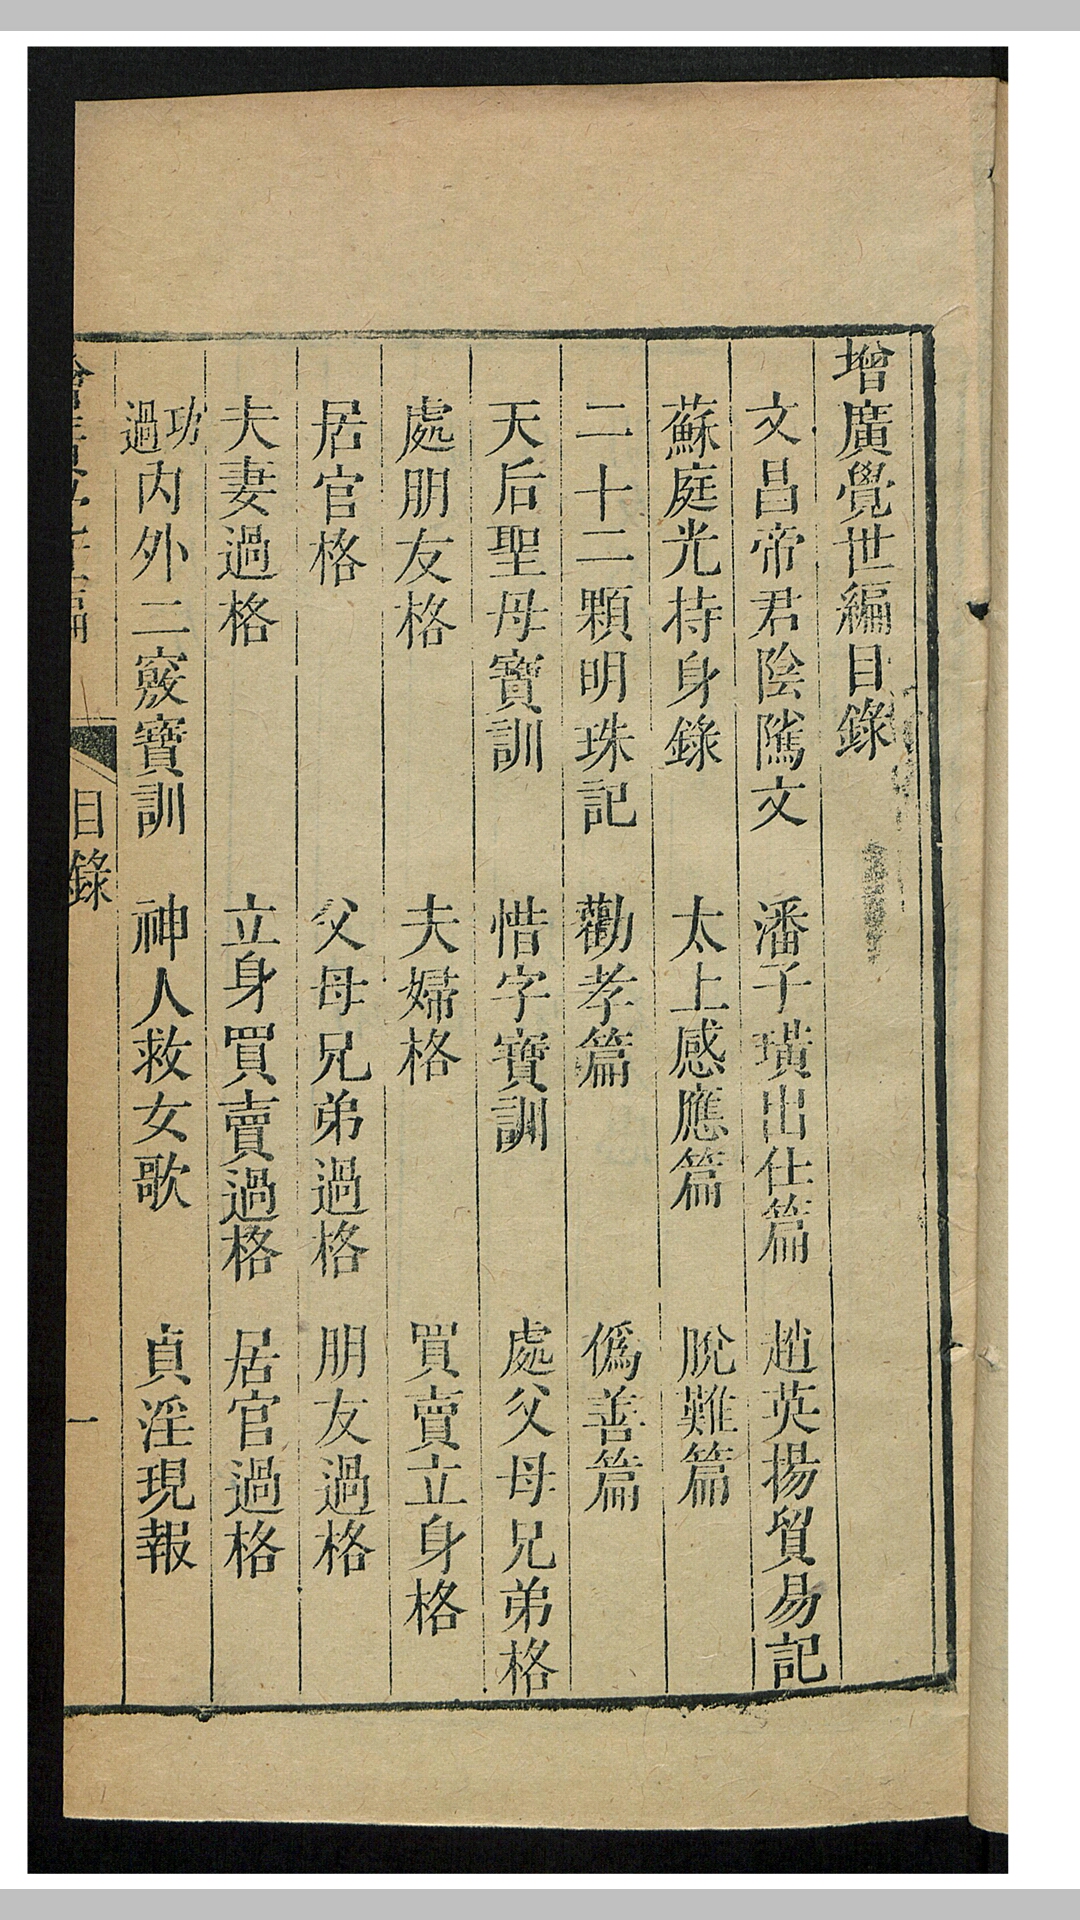 增廣覺世編目錄
文昌帝君陰隲文 潘子璜出仕篇 趙英揚貿易記
蘇庭光持身錄 太上感應篇 脫難篇
二十二顆明珠記 勸孝篇 僞善篇
天后聖母寶訓 惜字寶訓 處父母兄弟格
處朋友格 夫婦格 買賣立身格
居官格 父母兄弟過格 朋友過格
夫妻過格 立身買賣過格 居官過格
功過內外二竅寶訓 神人救女歌 貞淫現報
目錄 一